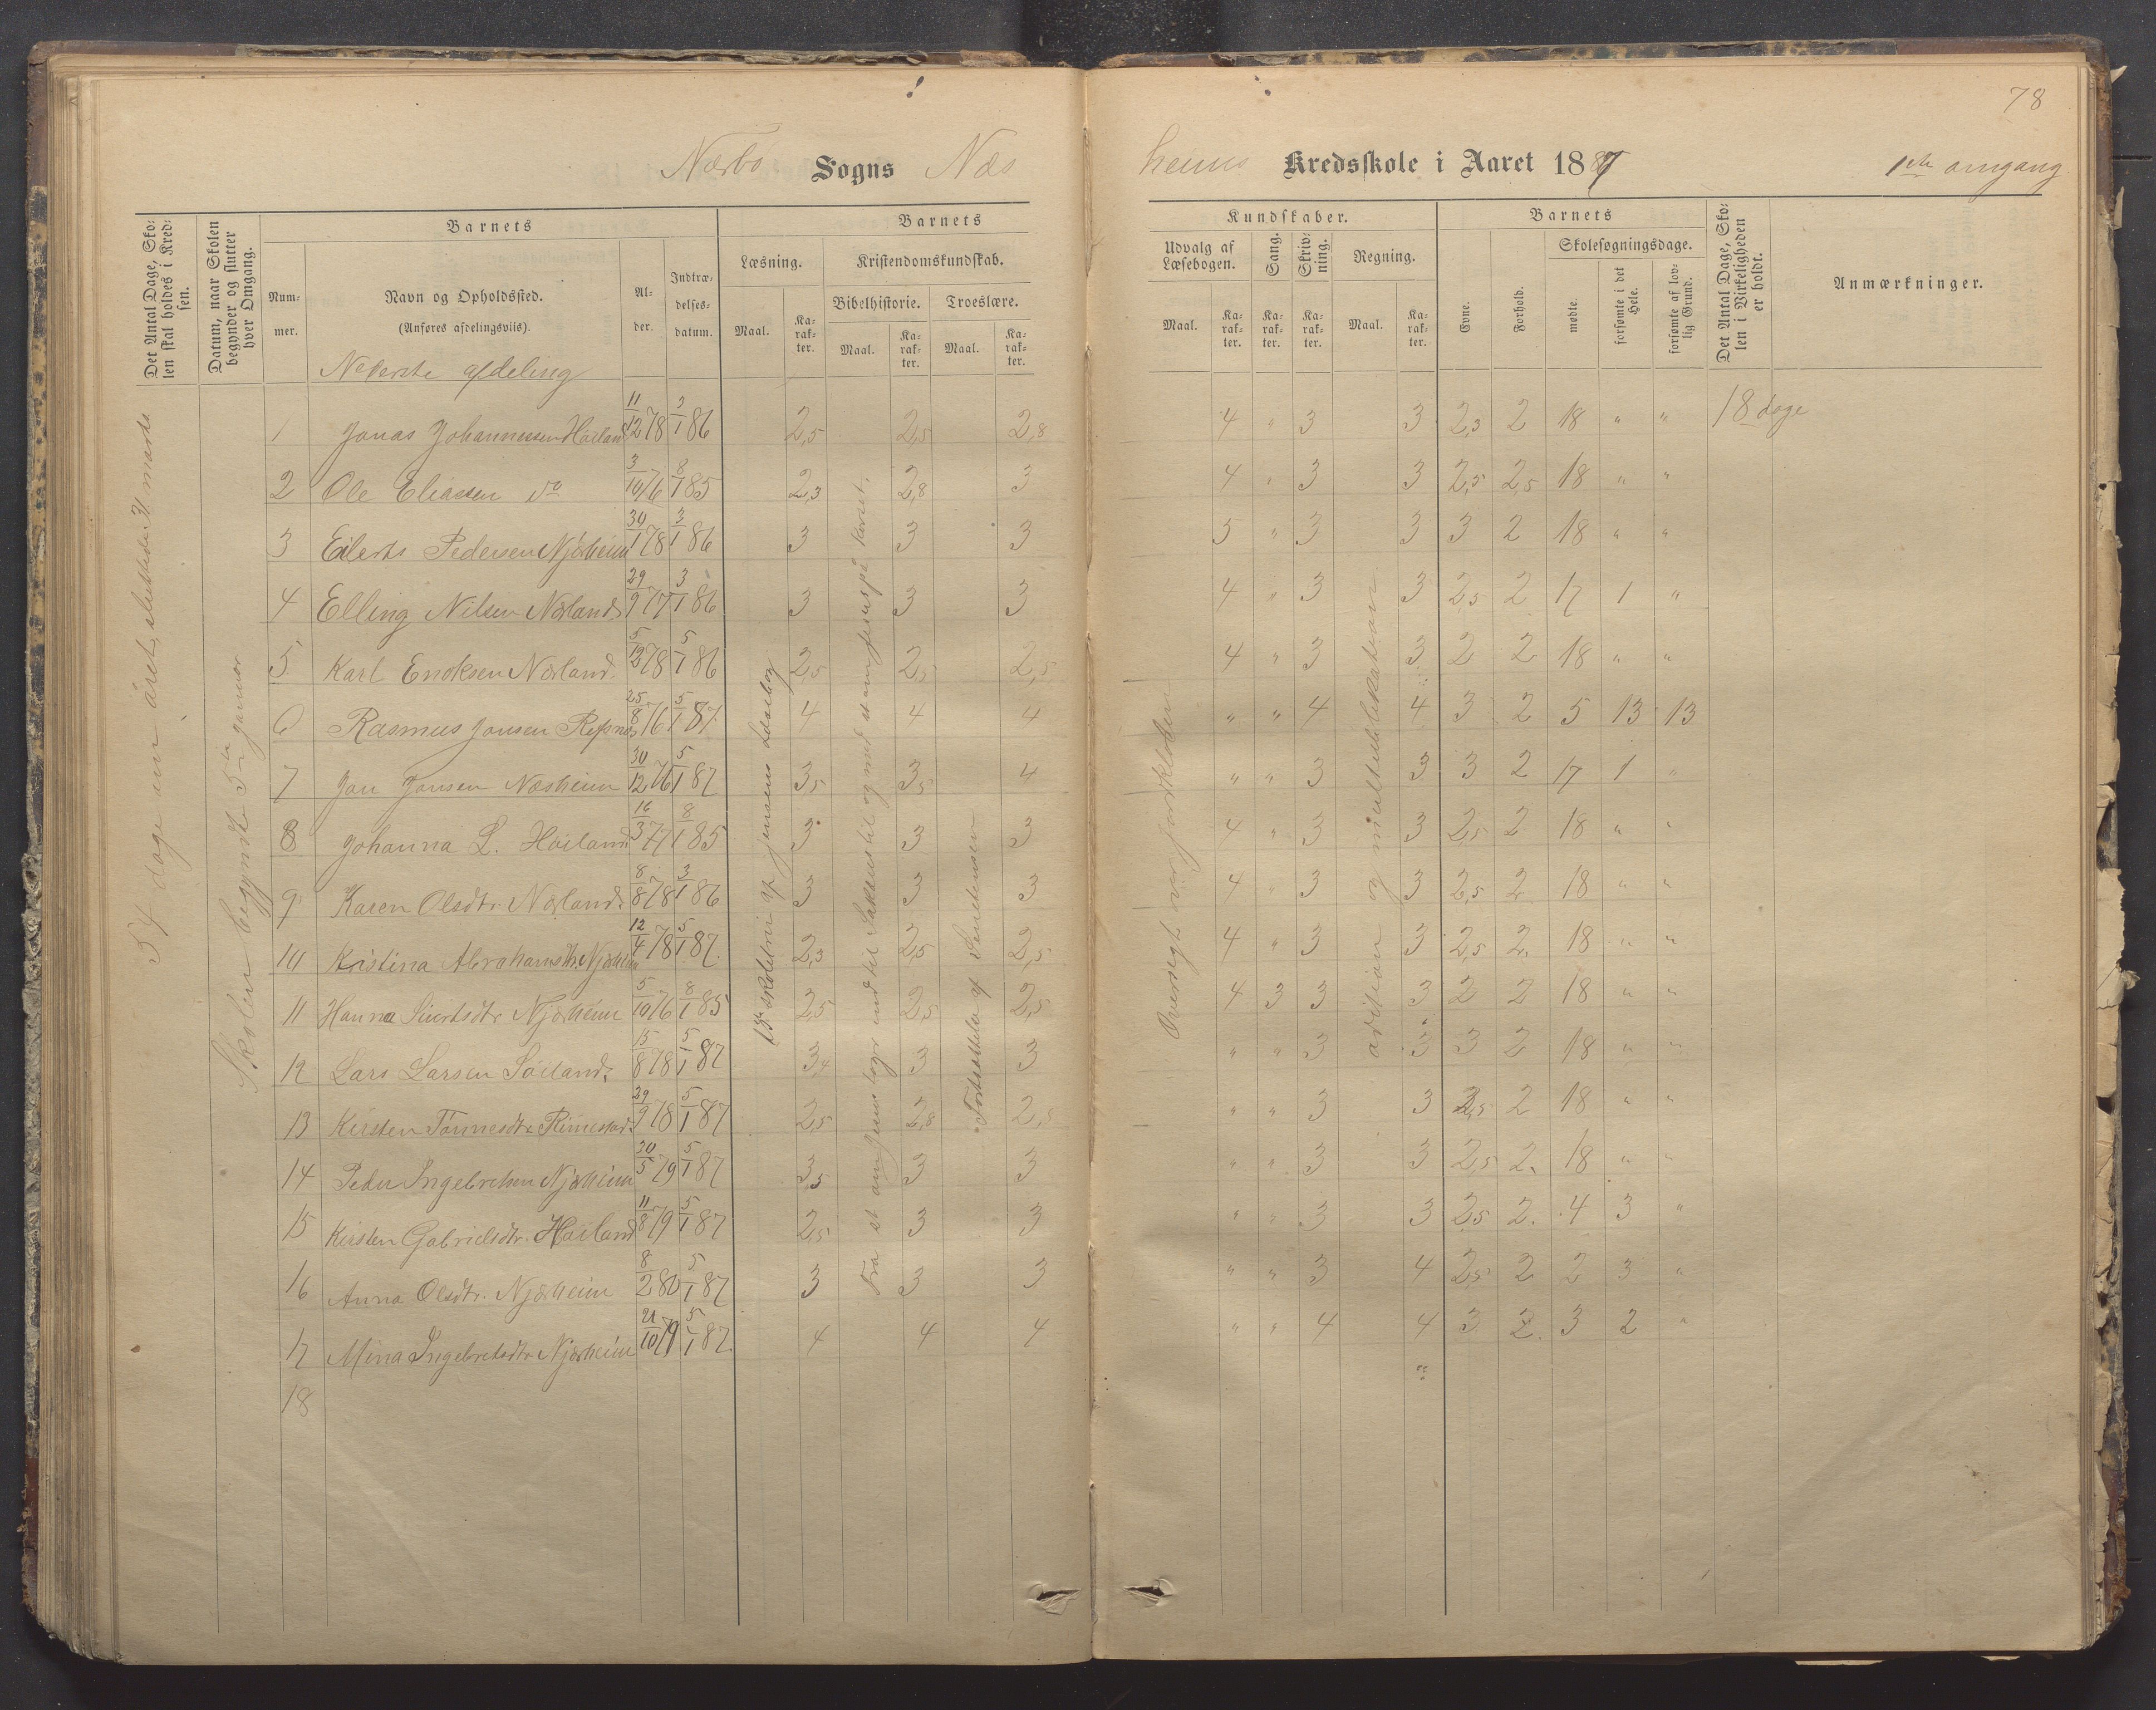 78
Nærbø Sogns Næs
heims Kredsskole i Aaret 1887 1ste omgang
Det Antal Dage, Skolen skal holdes i Kredsen.
Datum, naar Skolen begynder og slutter hver Omgang.
Barnets
Nummer.
Navn og Opholdssted.
(Anføres afdelingsviis).
Alder.
Indtrædelsesdatum.
Barnets
Læsning.
Maal.
Karakter.
Kristendomskundskab.
Bibelhistorie.
Maal.
Karakter.
Troeslære.
Maal.
Karakter.
Kundskaber.
Udvalg af Læsebogen.
Maal.
Karakter.
Sang.
Karakter.
Skrivning.
Karakter.
Regning.
Maal.
Karakter.
Barnets
Evne.
Forhold.
Skolesøgningsdage.
mødte.
forsømte i det Hele.
forsømte af lovlig Grund.
Det Antal Dage, Skolen i Virkeligheden er holdt.
Anmærkninger.
Nederste afdeling
54 dage um året, sluttede 31 marts
Skolen begyndte 5te januar
1ste skoletrin af Jensens Læsebog
Fortsættelse af
Oversigt over jordkloden
addition og multiplikation
1 Jonas Johannessen Høiland 11/12 78 3/1 86 2,5 2,5 2,8 4 " 3 3 2,3 2 18 " " 18 dage
2 Ole Eliassen do 3/10 76 8/1 85 2,3 2,8 3 4 " 3 3 2,5 2,5 18 " "
3 Eilerts Pedersen Njærheim 30/1 78 3/1 86 3 3 3 5 " 3 3 3 2 18 " "
4 Elling Nilsen Nærland 29/9 77 3/1 86 3 3 3 4 " 3 3 2,5 2 17 1 "
5 Karl Enoksen Nærland. 5/12 78 5/1 86 2,5 2,5 2,5 4 " 3 3 2 2 18 " "
6 Rasmus Jonsen Refsnes 25/8 76 5/1 87. 4 4 4 " " 4 4 3 2 5 13 13
7 Jon Jonsen Næsheim 30/12 76 5/1 87 3,5 3,5 4 " " 3 3 3 2 17 1 "
8 Johanna L. Høiland 16/3 77 8/1 85 3 3 3 4 " 3 3 2,5 2 18 " "
9 Karen Olsdtr. Nærland. 8/8 78 3/1 86 3 3 3 4 " 3 3 2,5 2 18 " "
10 Kristina Abrahamsdtr. Njærheim 12/4 78 5/1 87. 2,3 2,5 2,5 4 " 3 3 2,5 2. 18 " "
11 Hanna Siverts​dtr Njærheim 5/10 76 8/1 85 2,5 2,5 2,5 4 3 3 3 2 2 18 " "
12 Lars Larsen Søiland. 15/8 78 5/1 87 3,4 3 3 " " 3 3 3 2 18 " "
13 Kirsten Tønnesdtr Rimestad. 29/9 78 5/1 87 2,5 2,8 2,8 " " 3 3 2,5 2 18 " "
14 Peder Ingebretsen Njærheim 30/5 79 5/1 87 3,5 3 3 " " 3 3 2,5 2. 18 " "
15 Kirsten Gabrielsdtr. Høiland 11/8 79 5/1 87 2,5 3 3 " " 3 3 2,5 2. 4 3 "
16 Anna Olsdtr. Njærheim 8/2 80 5/1 87. 3 3 3 " " 3 4 2,5 2 2 3 "
17 Mina Ingebretsdtr Njærheim 21/10 79 5/1 87. 4 4 4 " " 4 4 3 2. 3 2 "
18